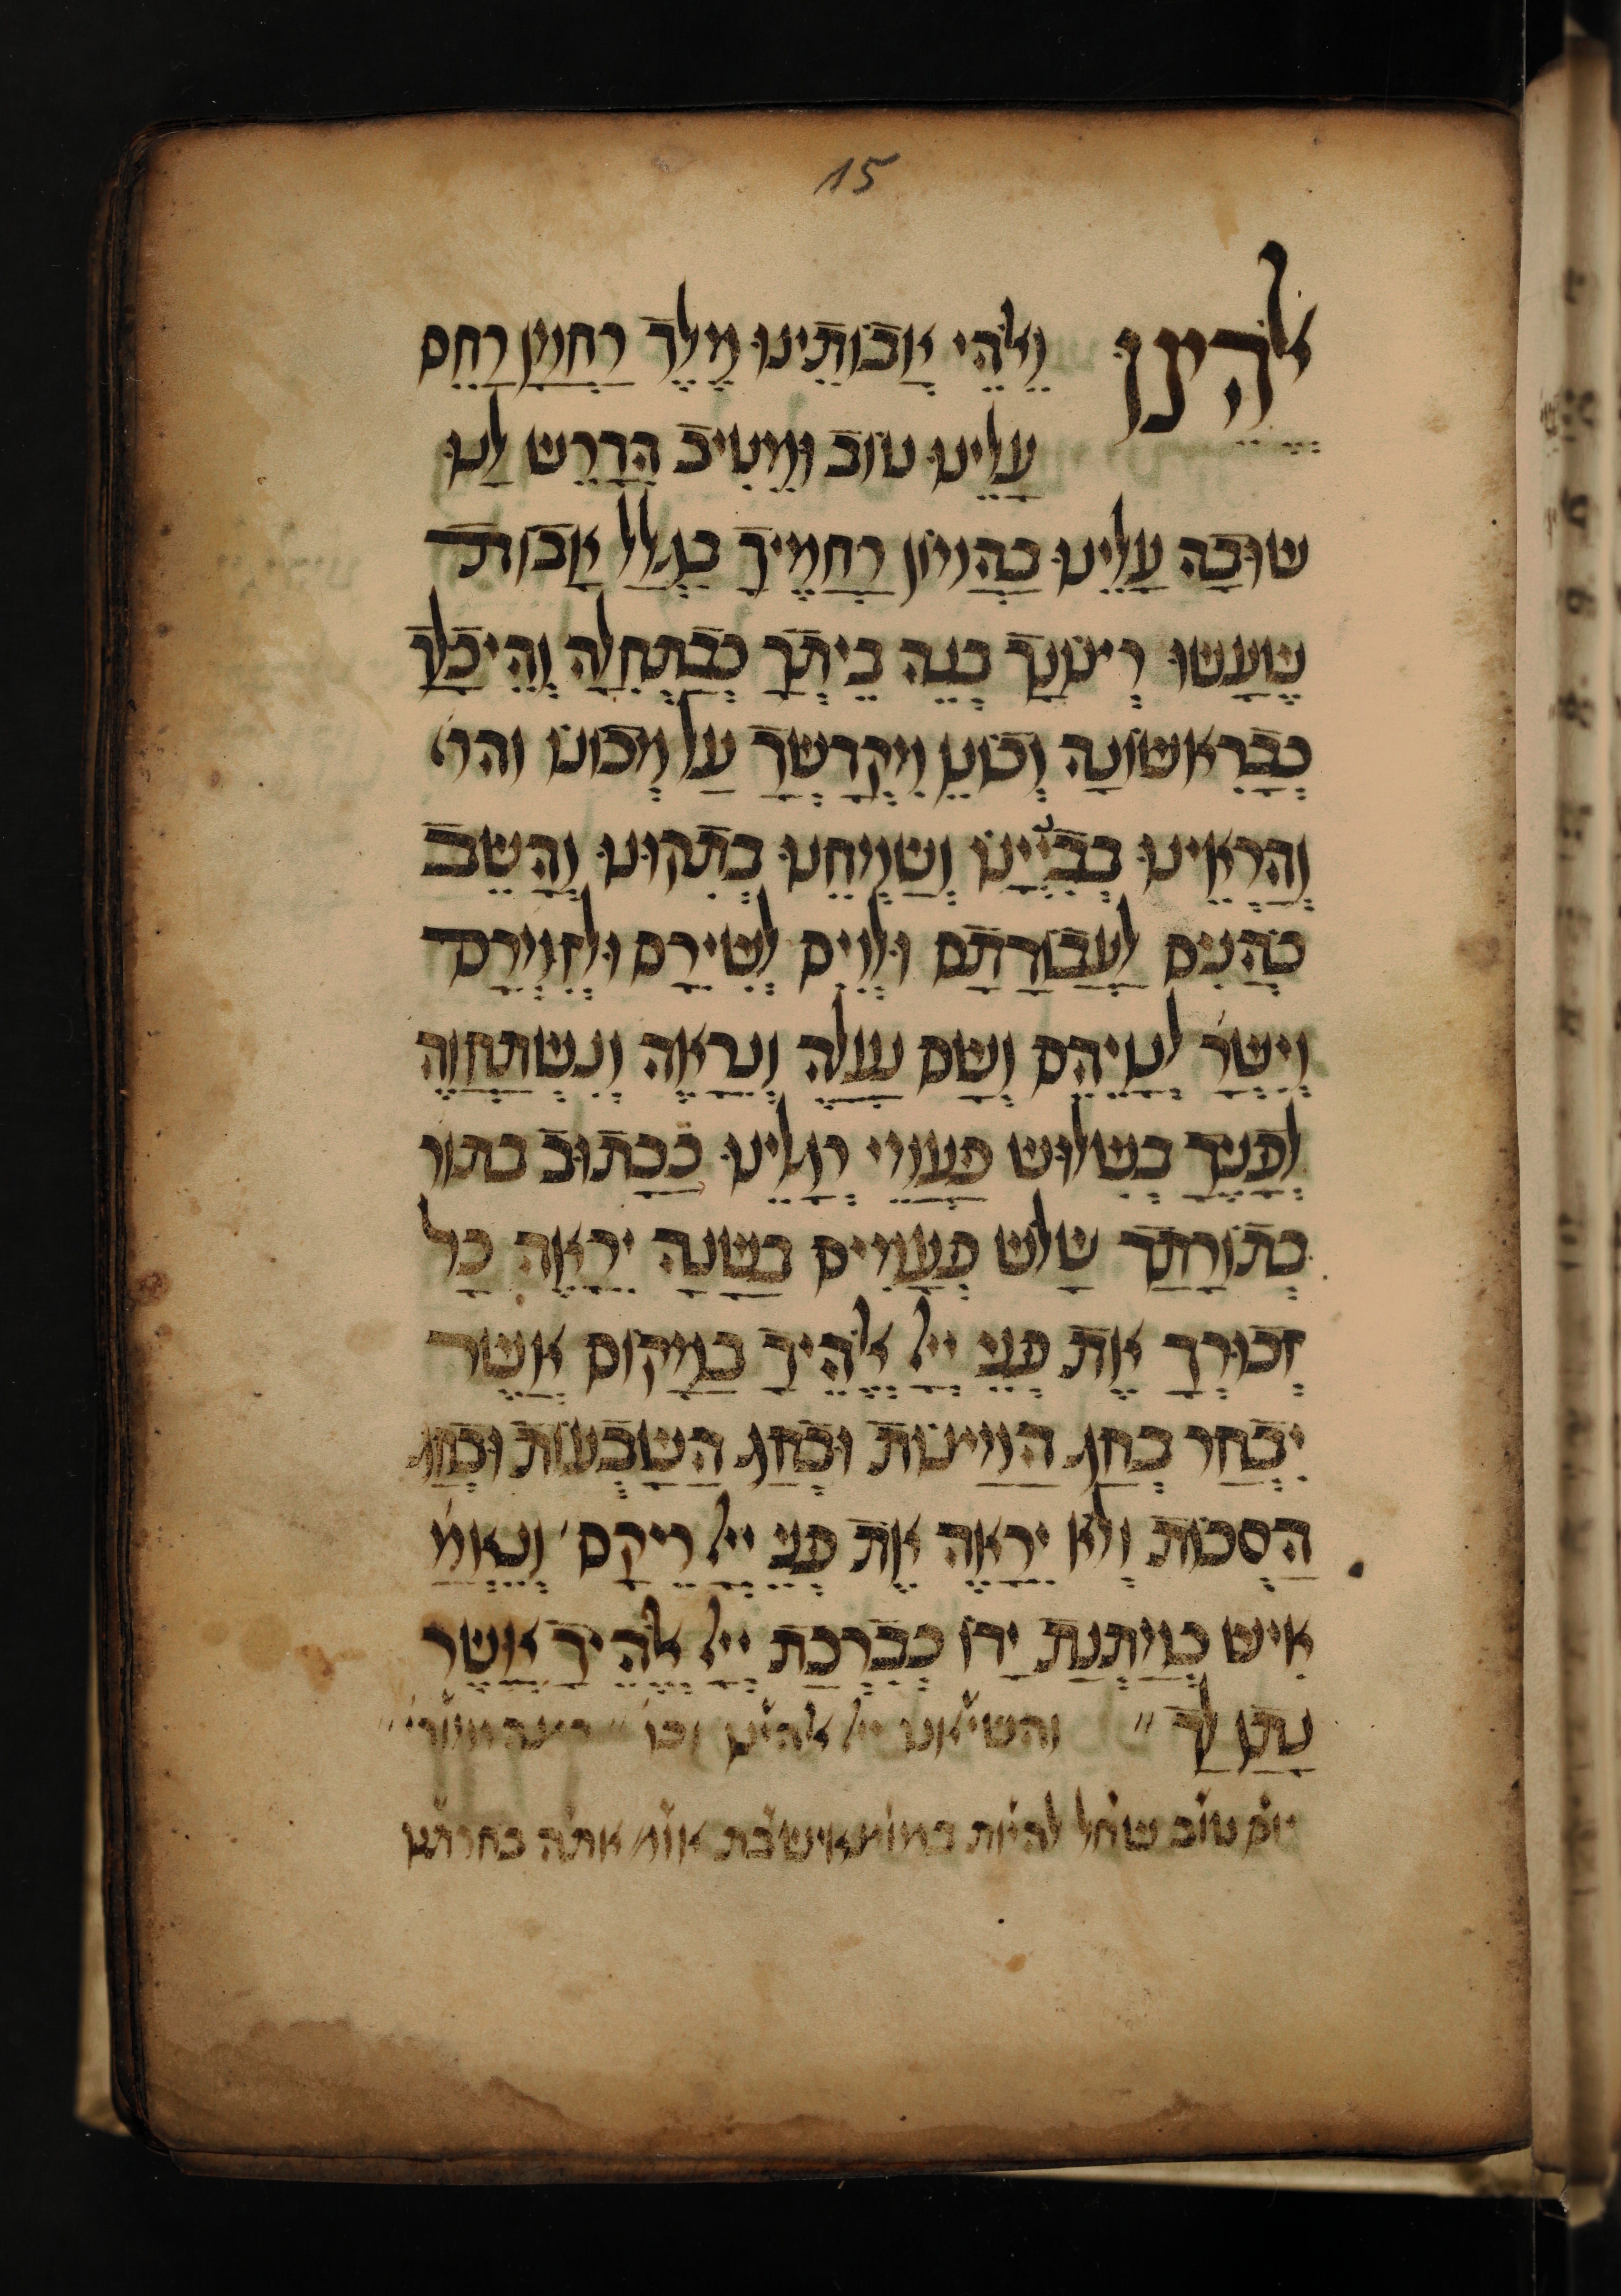 15
אלהינו וֵאלֹהֵי אֲבוֹתֵינוּ מֶלֶךְ רַחֲמָן רַחֵם
עָלֵינוּ טוֹב וּמֵטִיב הִדָּרֵשׁ לָנוּ
שׁוּבָה עָלֵינוּ בַּהֲמוֹן רַחֲמֶיךָ בִּגְלַל אָבוֹת
שֶׁעָשׂוּ רְצוֹנָךְ בְּנֵה בֵיתְךָ כְּבַתְּחִלָּה וְהֵיכָלָךְ
כְּבָרִאשׁוֹנָה וְכוֹנֵן מִקְדָּשְׁךָ עַל מְכוֹנוֹ והר׳
וְהַרְאֵינוּ בְּבִנְיָינוֹ וְשַׂמְּחֵנוּ בְּתִקּוּנוֹ וְהָשֵׁב
כֹּהֲנִים לַעֲבוֹדָתָם וּלְוִיִּם לְשִׁירָם וּלְזִמְרָם
וְיִשְׂרָ׳ לִנְוֵיהֶם וְשָׁם נַעֲלֶה וְנֵרָאֶה וְנִשְׁתַּחֲוֶה
לְפָנֶיךָ בְּשָׁלוֹשׁ פַּעֲמֵי רְגָלֵינוּ כַּכָּתוּב בתור
בְּתוֹרָתָךְ שָׁלֹשׁ פְּעָמִים בַּשָּׁנָה יֵרָאֶה כָל
זְכוּרְךָ אֶת פְּנֵי יְיָ֒ אֱלֹהֶיךָ בַּמָּקוֹם אֲשֶׁר
יִבְחַר בְּחַג הַמַּצּוֹת וּבְחַג הַשָּׁבֻעוֹת וּבְחַג
הַסֻּכּוֹת וְלֹא יֵרָאֶה אֶת פְּנֵי יְיָ֒ רֵיקָם׳ וְנֶאֱמ׳
אִישׁ כְּמַתְּנַת יָדוֹ כְּבִרְכַּת יְיָ֒ אֱלֹהֶיךָ אֲשֶׁר
נָתַן לָךְ׳׳ והשיאנו יי׳ אלהינו וכו׳׳
יום טוב שחל להיות במוצאי שבת אומ׳ אתה בחרתנו